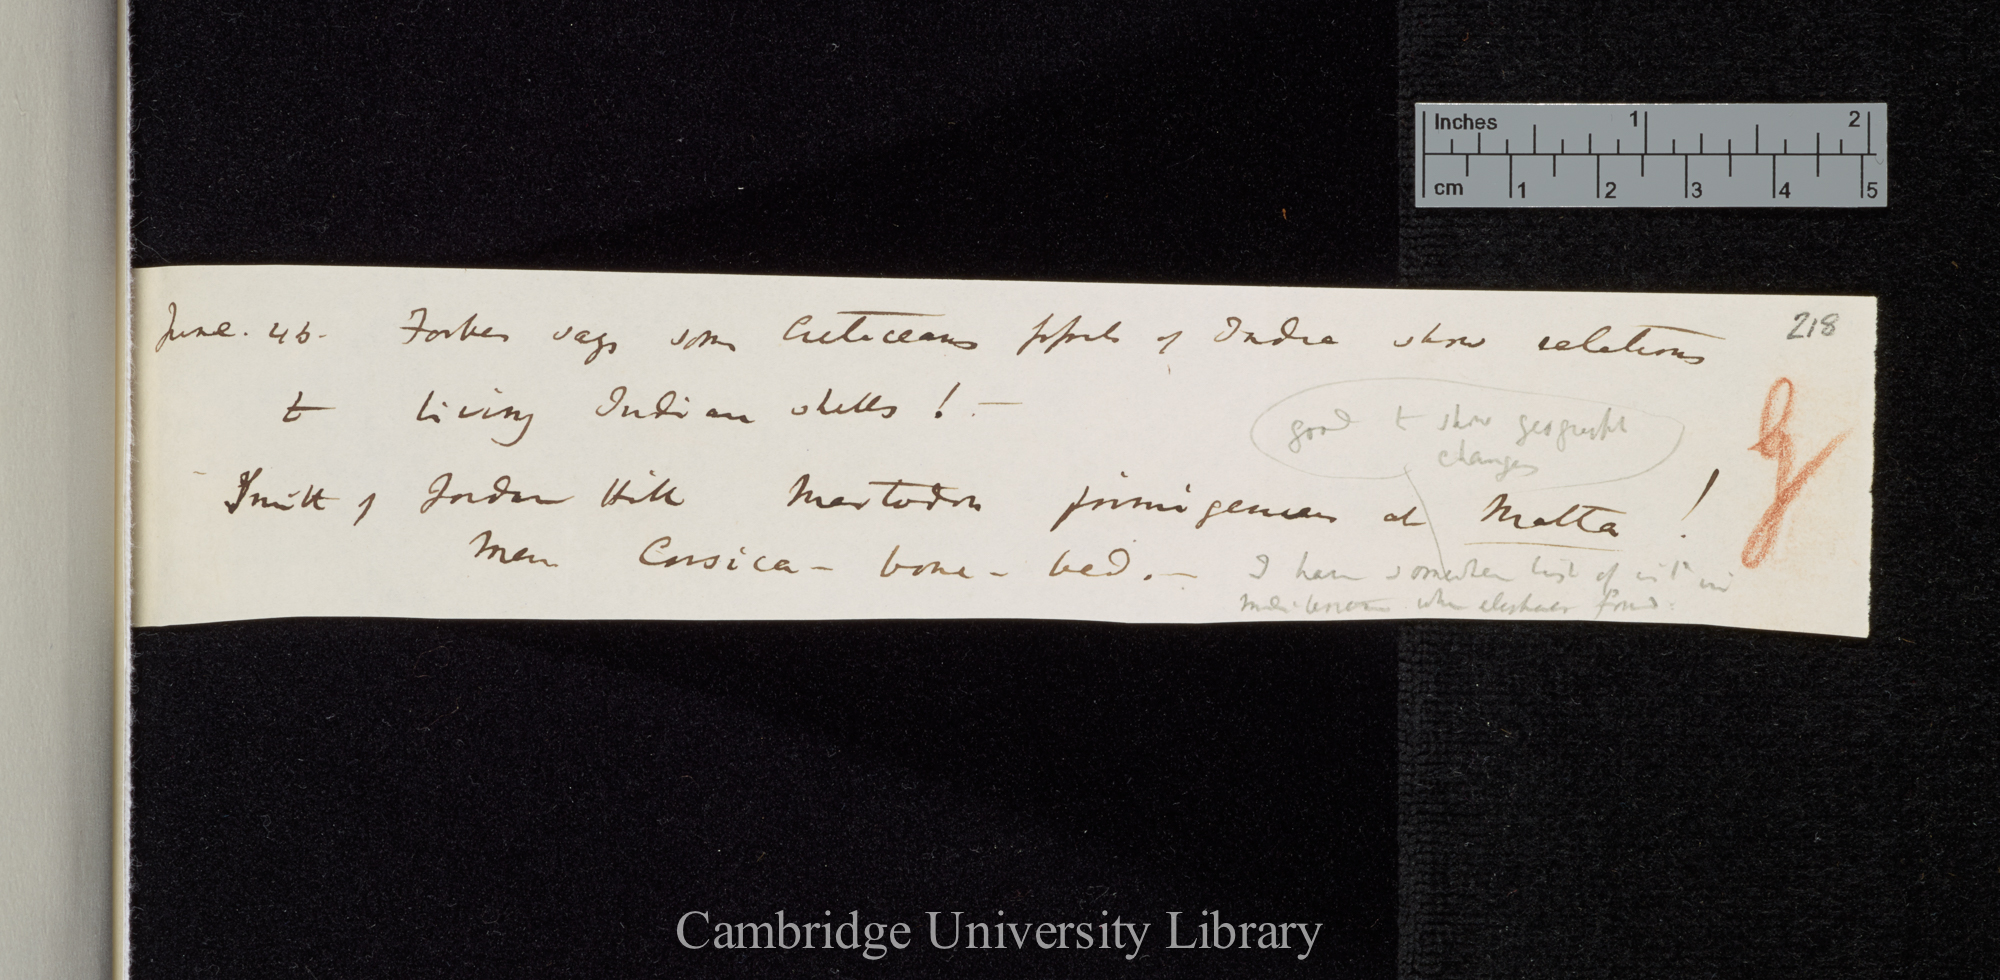 Inches 1 2
cm 1 2 3 4 5
218
June. 45. Forbes says some Cretaceans fossils of India show relations
to living Indian shells ! —
good to show geograph
changes
Smith of Jordan Hill Mastodon primigenius at Malta !
Man Corsica – bone – bed. —
I have somewhere list of isld in
Mediterranean where elephants found.
Cambridge University Library